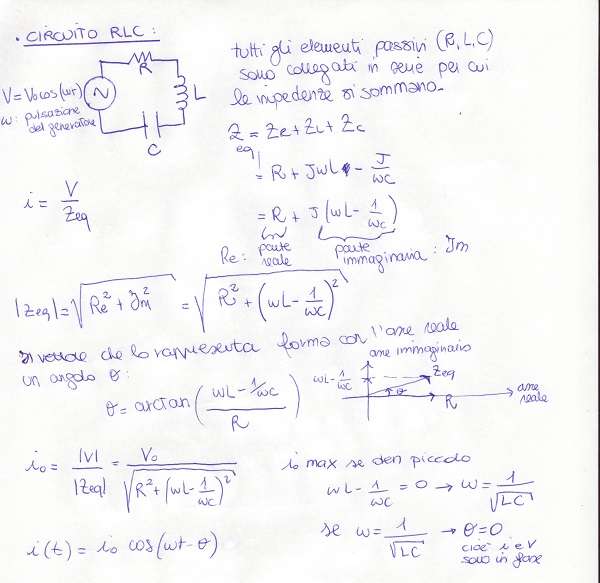 . CIRCUITO RLC :
R
L
C
V=V₀cos(ωt)
ω: pulsazione
del generatore
tutti gli elementi passivi (R,L,C)
sono collegati in serie per cui
le impedenze si sommano.
Z_eq = Z_R + Z_L + Z_C
= R + JωL - J/ωC
= R + J(ωL - 1/ωC)
Re: parte reale
parte immaginaria : Im
i = V/Z_eq
|Z_eq| = √(Re² + Im²) = √(R² + (ωL - 1/ωC)²)
Il vettore che lo rappresenta forma con l'asse reale
un angolo θ:
θ = arctan((ωL - 1/ωC)/R)
asse immaginario
ωL - 1/ωC
Z_eq
θ
R
asse
reale
i₀ = |V|/|Z_eq| = V₀/√(R² + (ωL - 1/ωC)²)
i(t) = i₀ cos(ωt - θ)
i₀ max se den piccolo
ωL - 1/ωC = 0 → ω = 1/√LC
se ω = 1/√LC → θ=0
cioè i e V
sono in fase